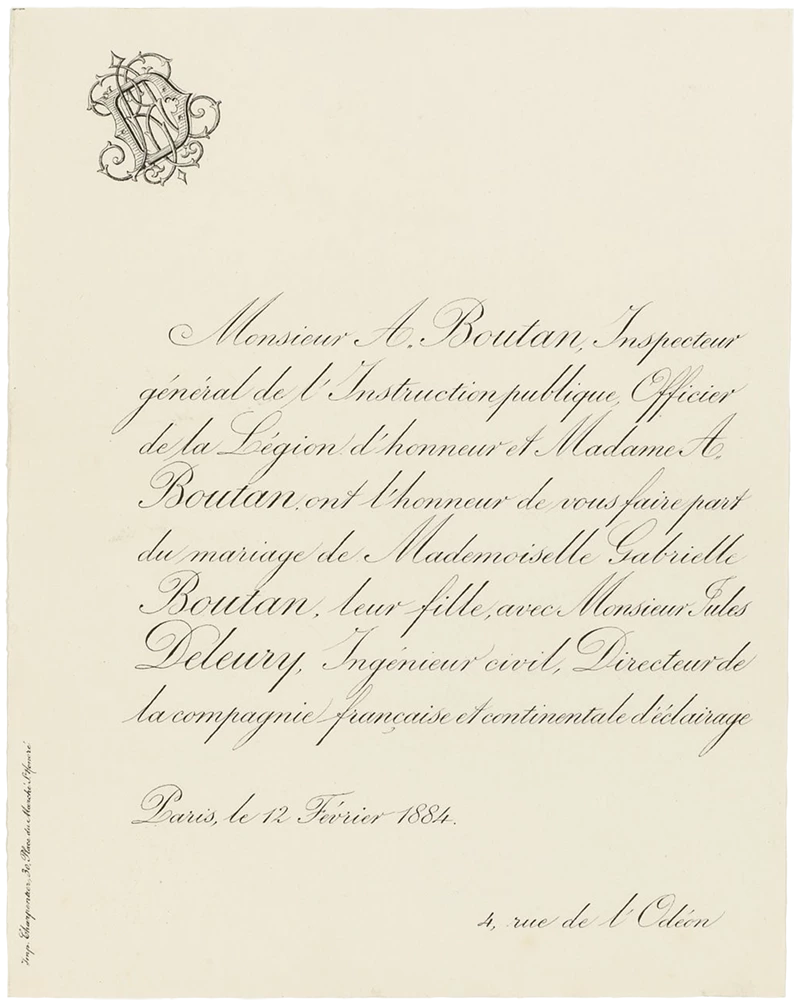 Monsieur A. Boutan, Inspecteur
général de l'Instruction publique, Officier
de la Légion d'honneur et Madame A.
Boutan, ont l'honneur de vous faire part
du mariage de Mademoiselle Gabrielle
Boutan, leur fille, avec Monsieur Jules
Deleury, Ingénieur civil, Directeur de
la compagnie française et continentale d'éclairage
Paris, le 12 Février 1884.
4, rue de l'Odéon
Imp. Charpentier, 30, Place du Marché St Honoré